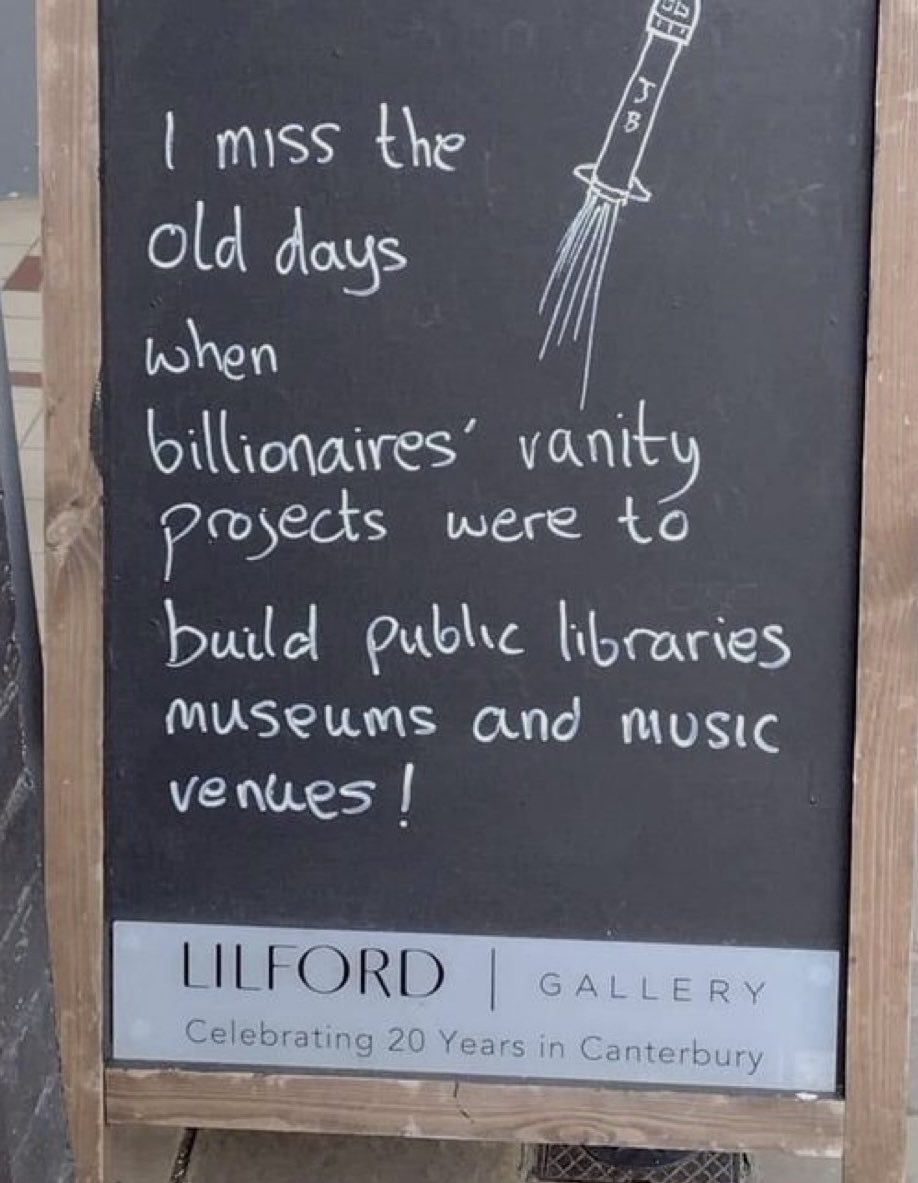 J
B
I miss the
old days
when
billionaires' vanity
projects were to
build public libraries
museums and music
venues!
LILFORD | GALLERY
Celebrating 20 Years in Canterbury